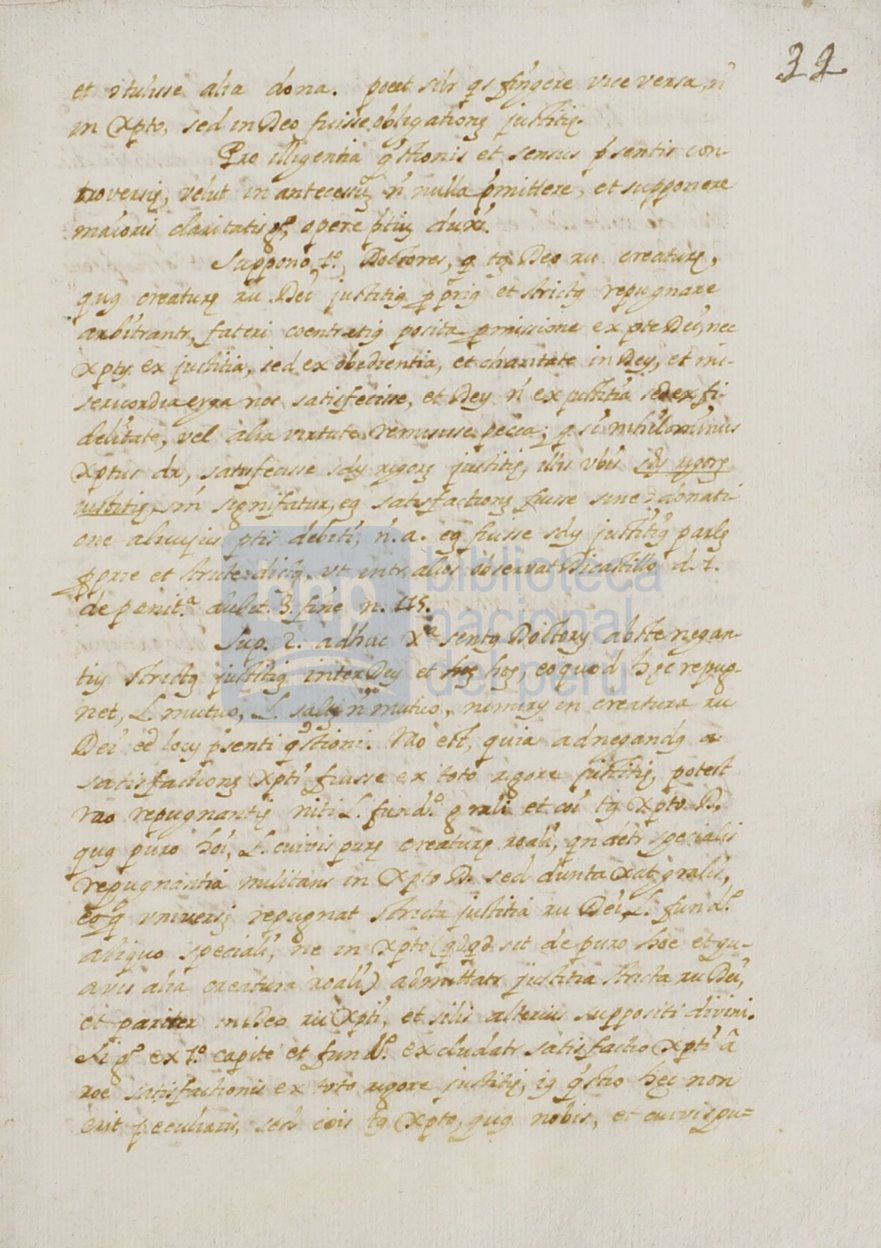 32
et intulisse alia dona. pocet silr qs fingere vice versa, n̄
in Xpto, sed in Deo fuisse obligationȩ justitiȩ.
Pro illigentia qstionis et sensus pr̄sentis con-
troversiȩ, velut in antecessū n̄ nulla prmittere, et supponere
maioris claritatis gr̄, opere ptiū duxi.
Suppono 1º. Doctores, q tȩ Deo ru creaturȩ,
quȩ creaturȩ ru Dei justitiȩ ppriȩ et strictȩ repugnare
arbitrantr, fateri coentrȩ posita pmissione ex pte Dei, nec
Xptȩ ex justitia, sed ex obedientia, et charitate in Dey, et mi-
sericordia erga nos satisfecisse, et Dey n̄ ex justitia sed ex fi-
delitate, vel alia virtute remisisse pecca; q si nihilominus
Xptus dr, satisfecisse sdȩ rigorȩ justitiȩ, illis vbis sdȩ rigorȩ
iustitiȩ, sm̄ significatur, eȩ satisfactionȩ fuisse sine donati-
one alicujus ptis debiti, n. a. eȩ fuisse sdȩ justitiȩ
pprie et stricte dictȩ, vt intr alios observat Dicastillo d. 1.
de penit.ª dubit. 3. fine n. 115.
Sup. 2. adhuc Xª sentȩ Doctorȩ abste negan-
tiȩ strictȩ justitiȩ inter Dey et hoȩ, eo quod hȩc repug-
net, L. mutuo, L. saltȩ n̄ mutuo, nimirȩ in creatura ru
Dei eē locȩ pr̄senti qstioni. Rāo est, quia ad negandȩ
satisfactionȩ Xpti fuisse ex toto rigore justitiȩ, potest
rāo repugnantiȩ niti L. fundº. grali et cōi tȩ Xpto D.
quȩ puro hōi, L. cuivis purȩ creaturȩ rōali, qn detr specialis
repugnantia militans in Xpto D. sed dunta xat gralis,
eo q vniversȩ repugnat stricta justitia ru Dei, L. fundº.
aliquo speciali, ne in Xpto (qdqd sit de puro hōe et qu-
avis alia creatura rōali) admittatr justitia stricta ru Dei,
et pariter in Deo ru Xpti, et silis alterius suppositi divini.
Si pº ex 1º capite et fundº. excludatr satisfactio Xpti â
rōe satisfactionis ex toto rigore justitiȩ, iȩ qstio hȩc non
erit peculiaris, sed cōis tȩ Xpto, quȩ nobis, et cuivis pu=